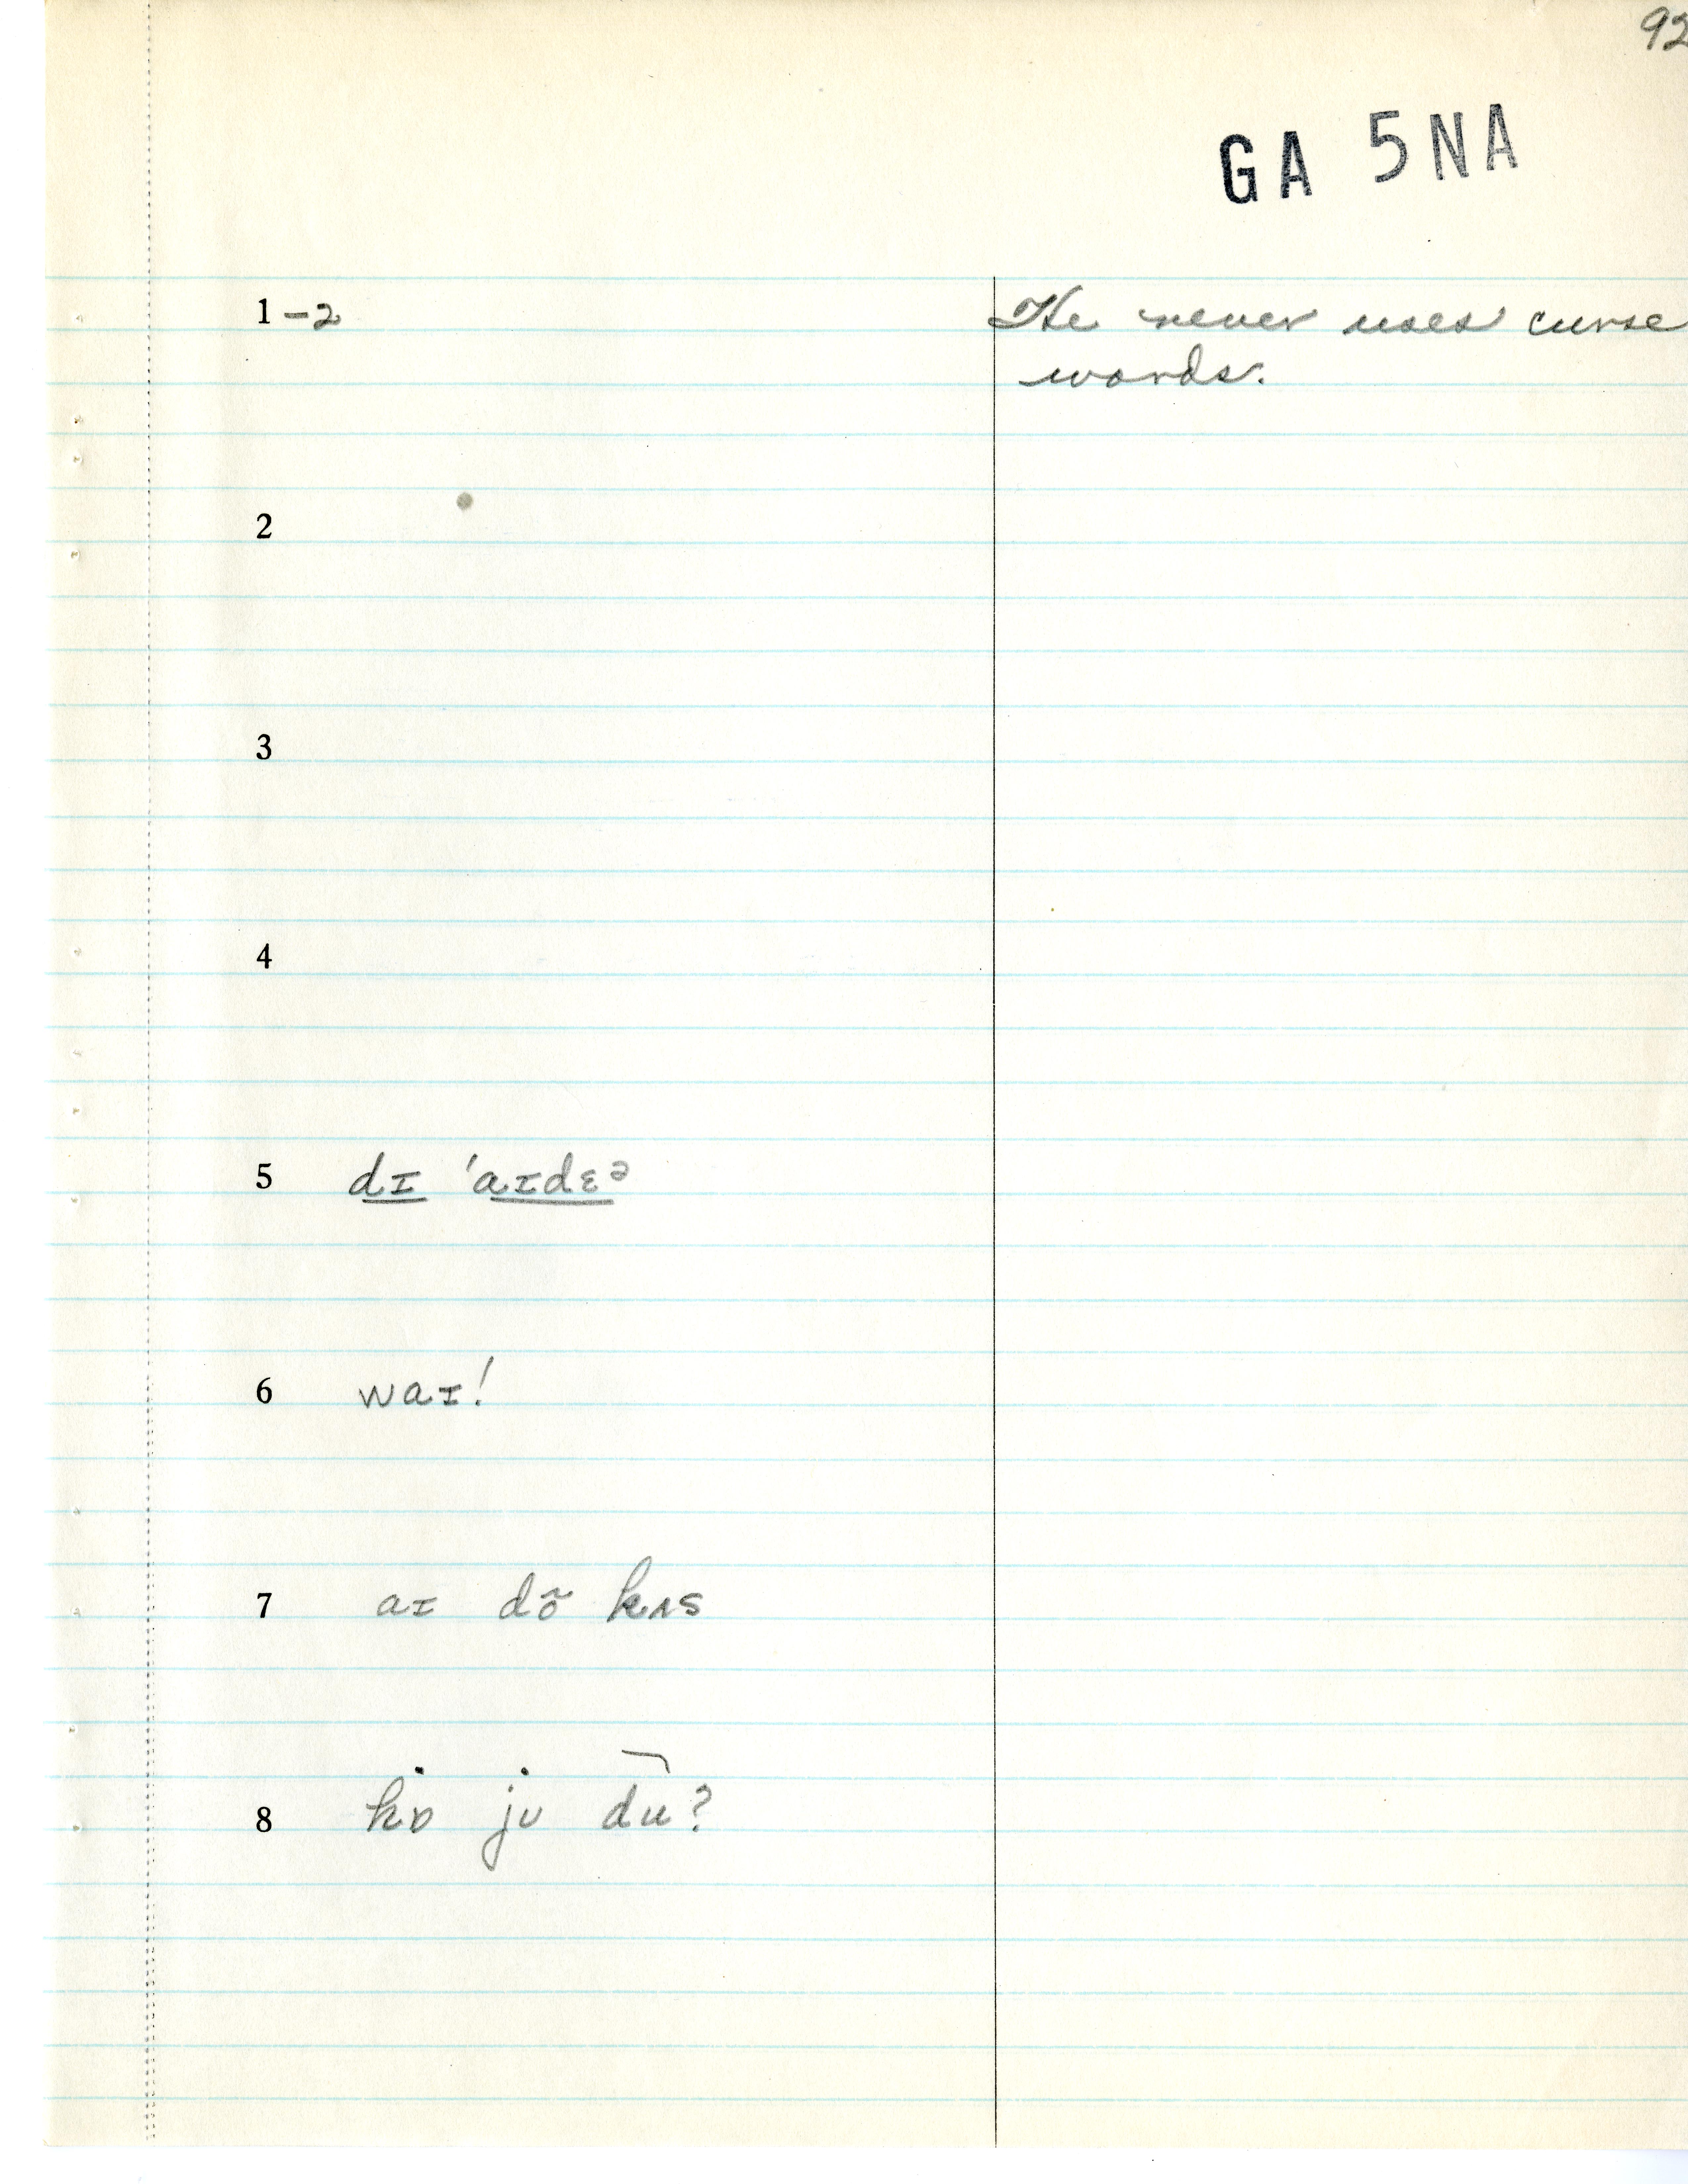 92
GA 5NA
1-2 He never uses curse
words.
2
3
4
5 dɪ 'aɪdɛᵊ
6 waɪ!
7 aɪ dõ kʌs
8 hɒ jʊ du?